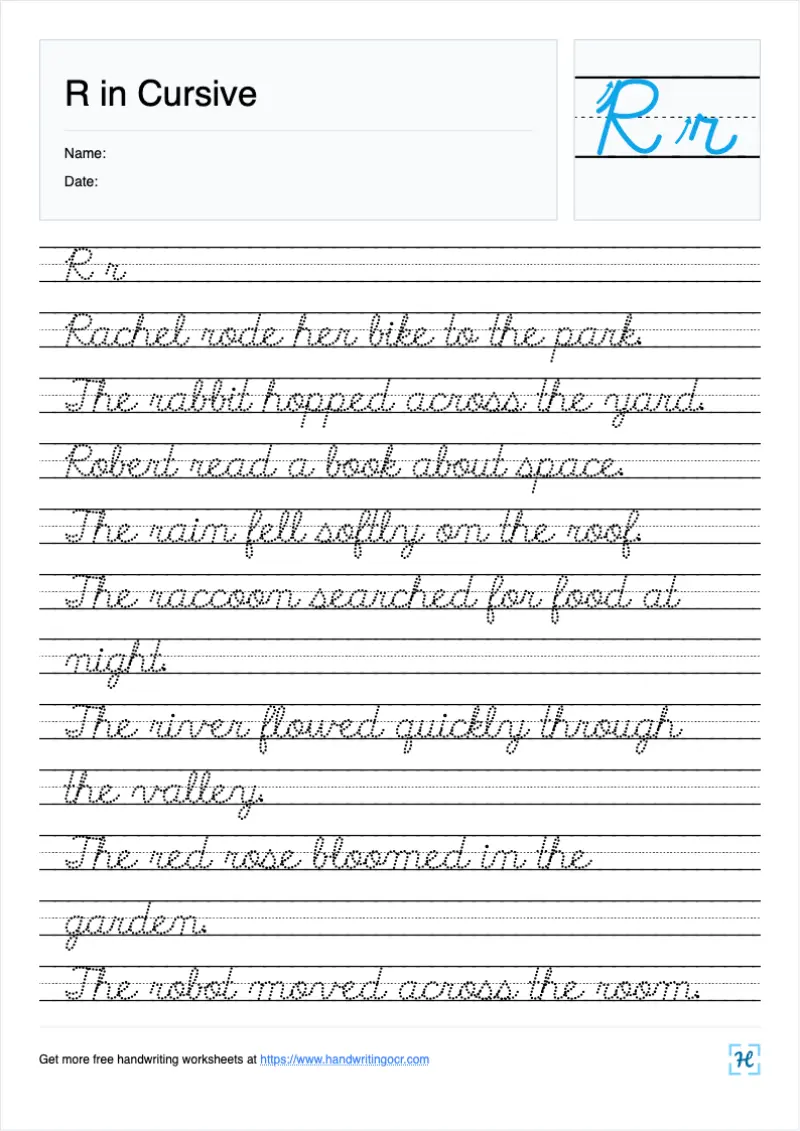 R in Cursive
R r
Name:
Date:
R r
Rachel rode her bike to the park.
The rabbit hopped across the yard.
Robert read a book about space.
The rain fell softly on the roof.
The raccoon searched for food at
night.
The river flowed quickly through
the valley.
The red rose bloomed in the
garden.
The robot moved across the room.
Get more free handwriting worksheets at https://www.handwritingocr.com
H